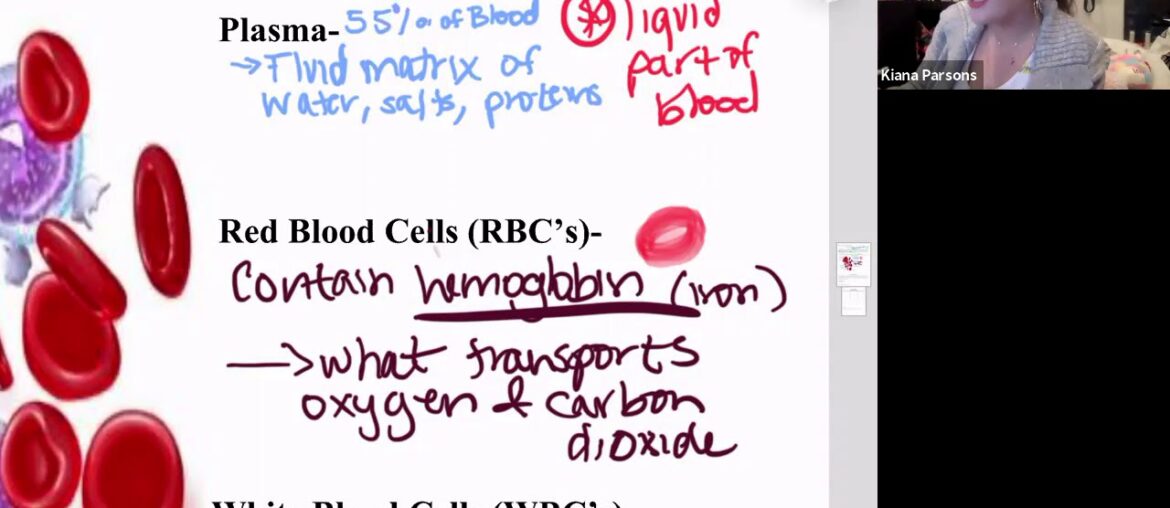 Plasma- 55% of Blood
→ Fluid matrix of
water, salts, proteins
liquid
part of
blood
Kiana Parsons
Red Blood Cells (RBC's)-
Contain hemoglobin (iron)
→ what transports
oxygen & carbon
dioxide
White Blood Cells (WBC's)